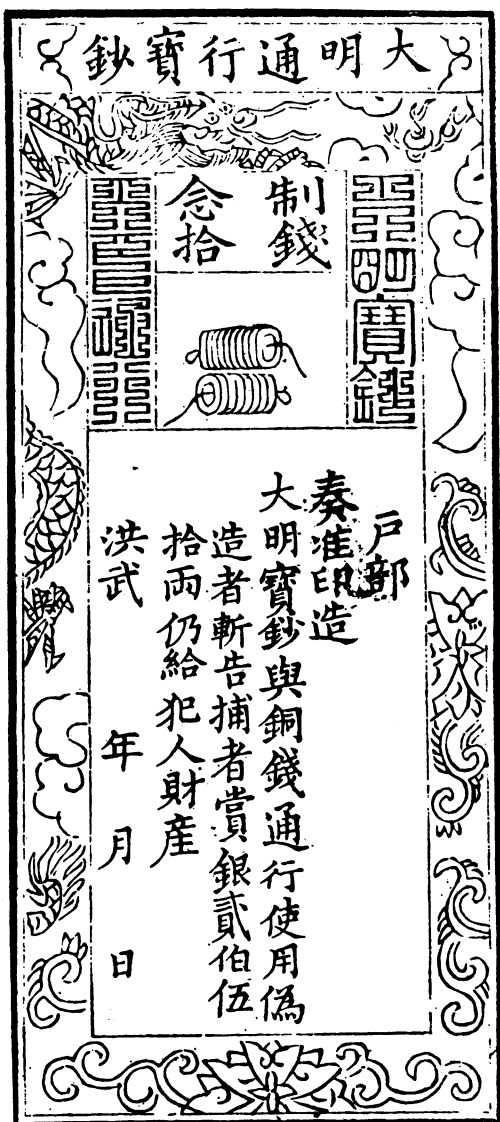 大明通行寶鈔
大明寶鈔
制錢
念拾
天下通行
户部
奏准印造
大明寶鈔與銅錢通行使用偽
造者斬告捕者賞銀貳伯伍
拾兩仍給犯人財産
洪武 年 月 日